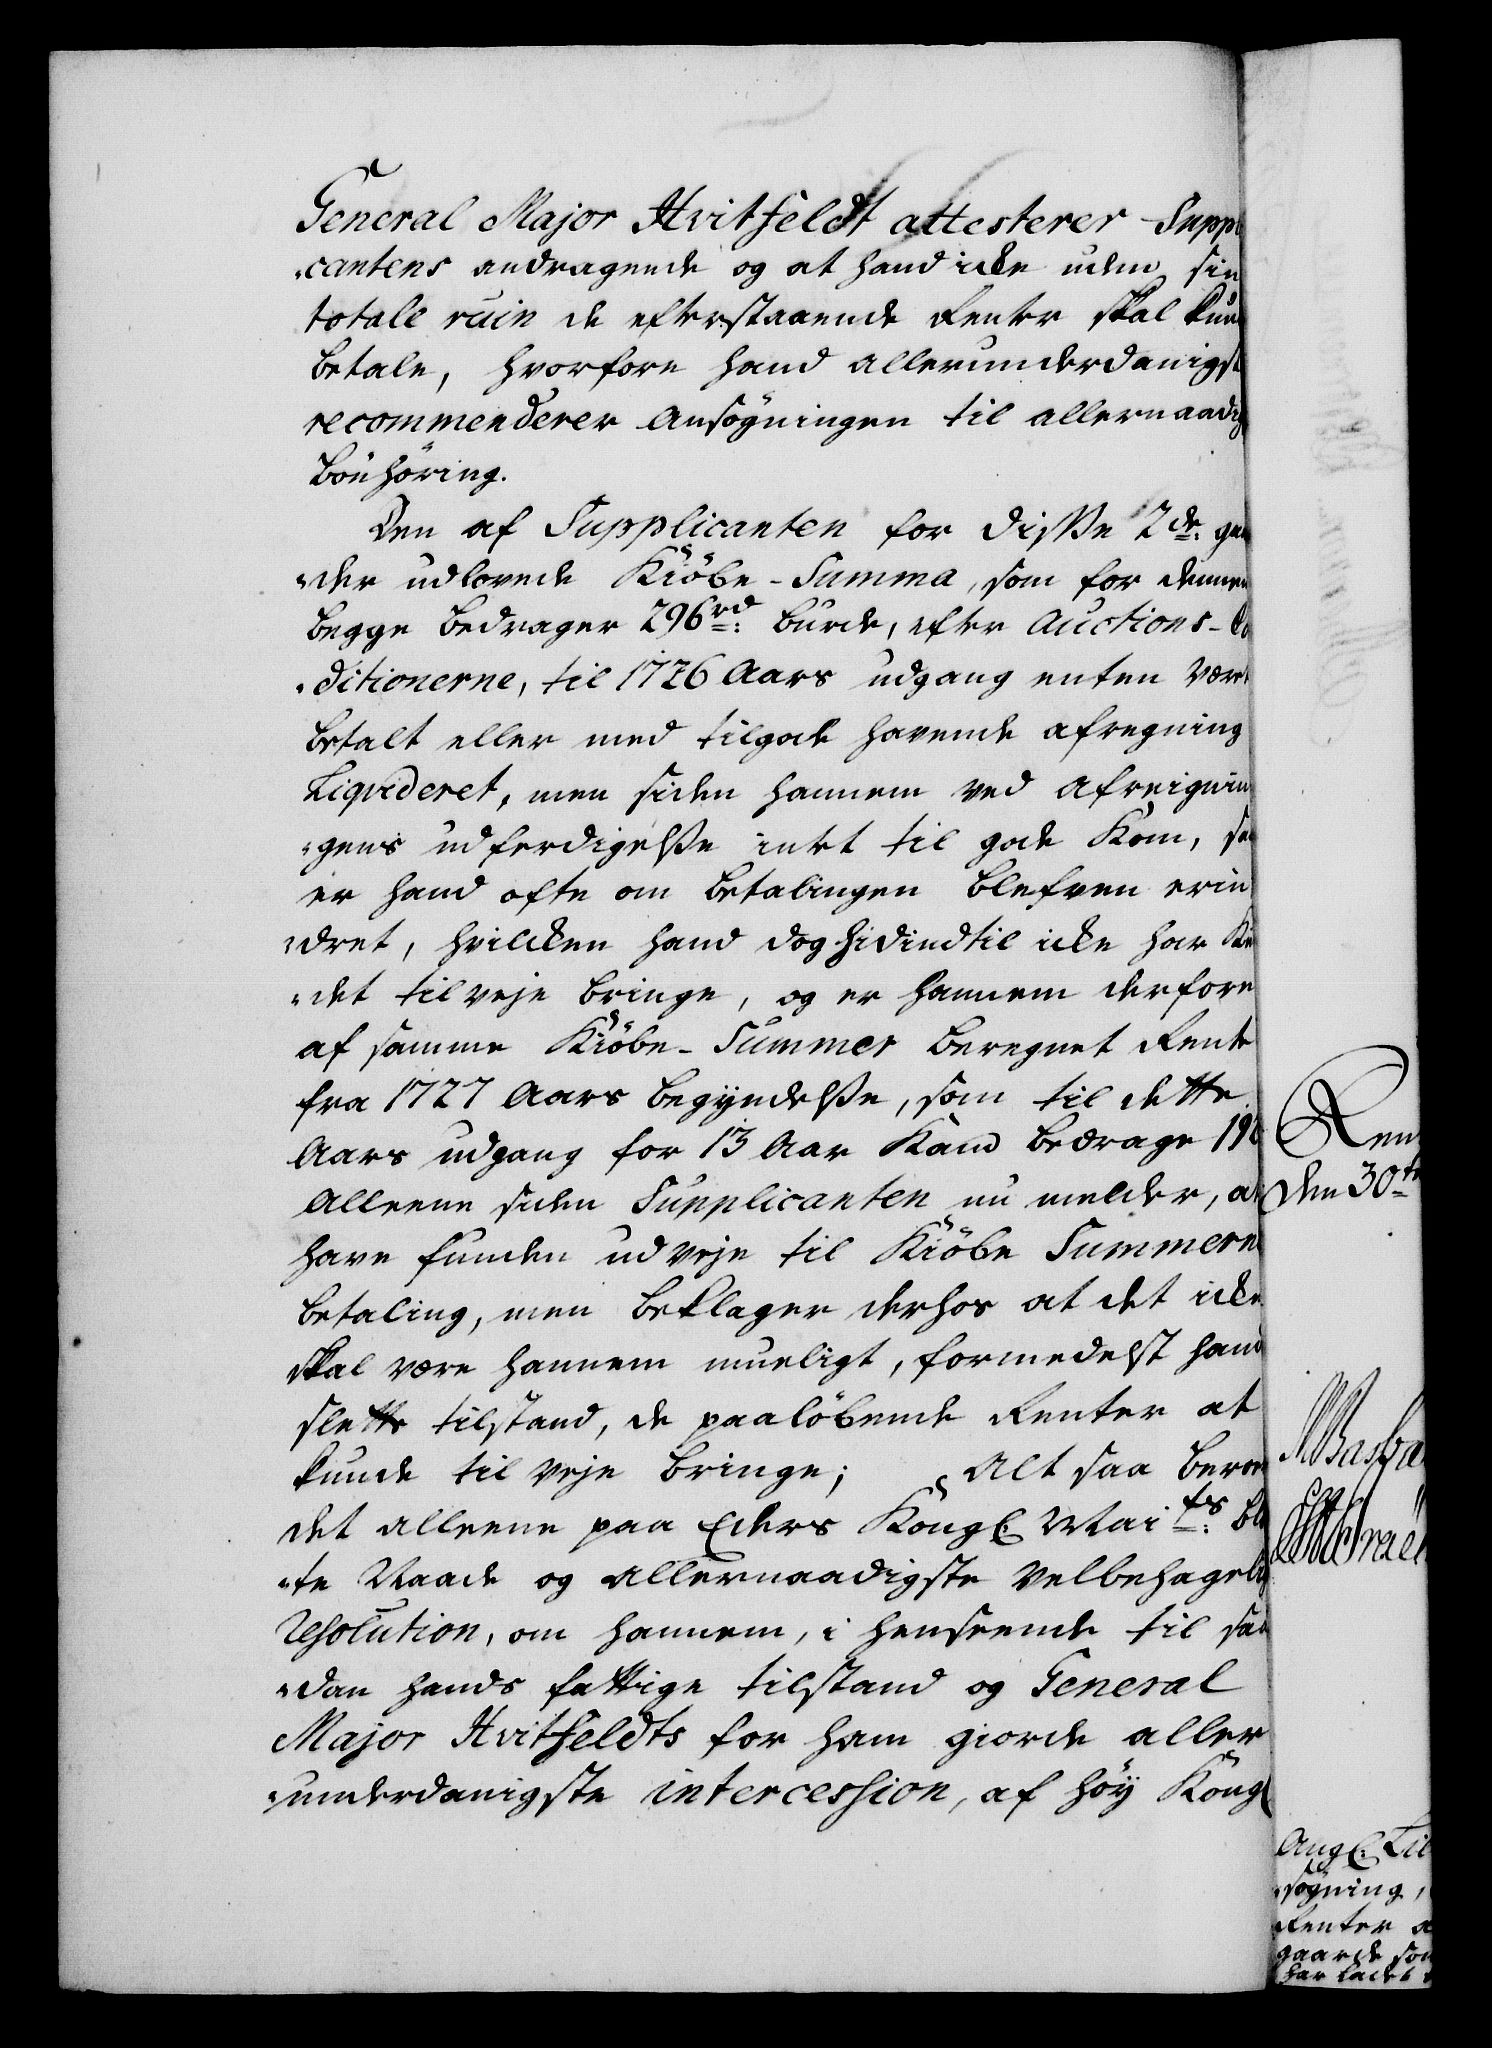 General Major Hvitfeldt attesterer Suppli
-cantens andragende og at hand icke uden sin
totale ruin de efterstaaende Renter skal kun
betale, hvorfore hand allerunderdanigst
recommenderer Ansøgningen til allernaadig
Bönhöring.
Den af Supplicanten for disse 2de: gaar
-der udlovede Kiöbe-Summa, som for dennem
begge bedrager 296 rd: burde, efter Auctions-Co
-ditionerne, til 1726 Aars udgang enten været
betalt eller med tilgode havende afregning
Liqvideret, men siden hannem ved Afreignin
-gens udferdigelsse intet til gode kom, saa
er hand ofte om betalingen blefven erin
-dret, hvilcken hand dog hidindtil icke har Ku
-det tilveje bringe, og er hannem derfore
af samme Kiöbe-Summer beregnet Rente
fra 1727 Aars begÿndelsse, som til dette
Aars udgang for 13 Aar Kand bedrage 19
Alleene siden Supplicanten nu melder, at
have funden udveje til Kiöbe Summerne
betaling, men beklager derhos at det icke
skal være hannem mueligt, formedelst hand
slette tilstand, de paaløbende Renter at
kunde til veje bringe; Alt saa beroer
det alleene paa Eders Kongl. Maits: bla
-te Naade og allernaadigste velbehagelig
resolution, om hannem, i henseende til saa
-dan hands fattige tilstand og General
Major Hvitfeldts for ham giorde aller
-underdanigste intercession, af höÿ Kongl
Ren
den 30te
Angl: Til
-søgning,
Renter a
gaarde som
har ladet